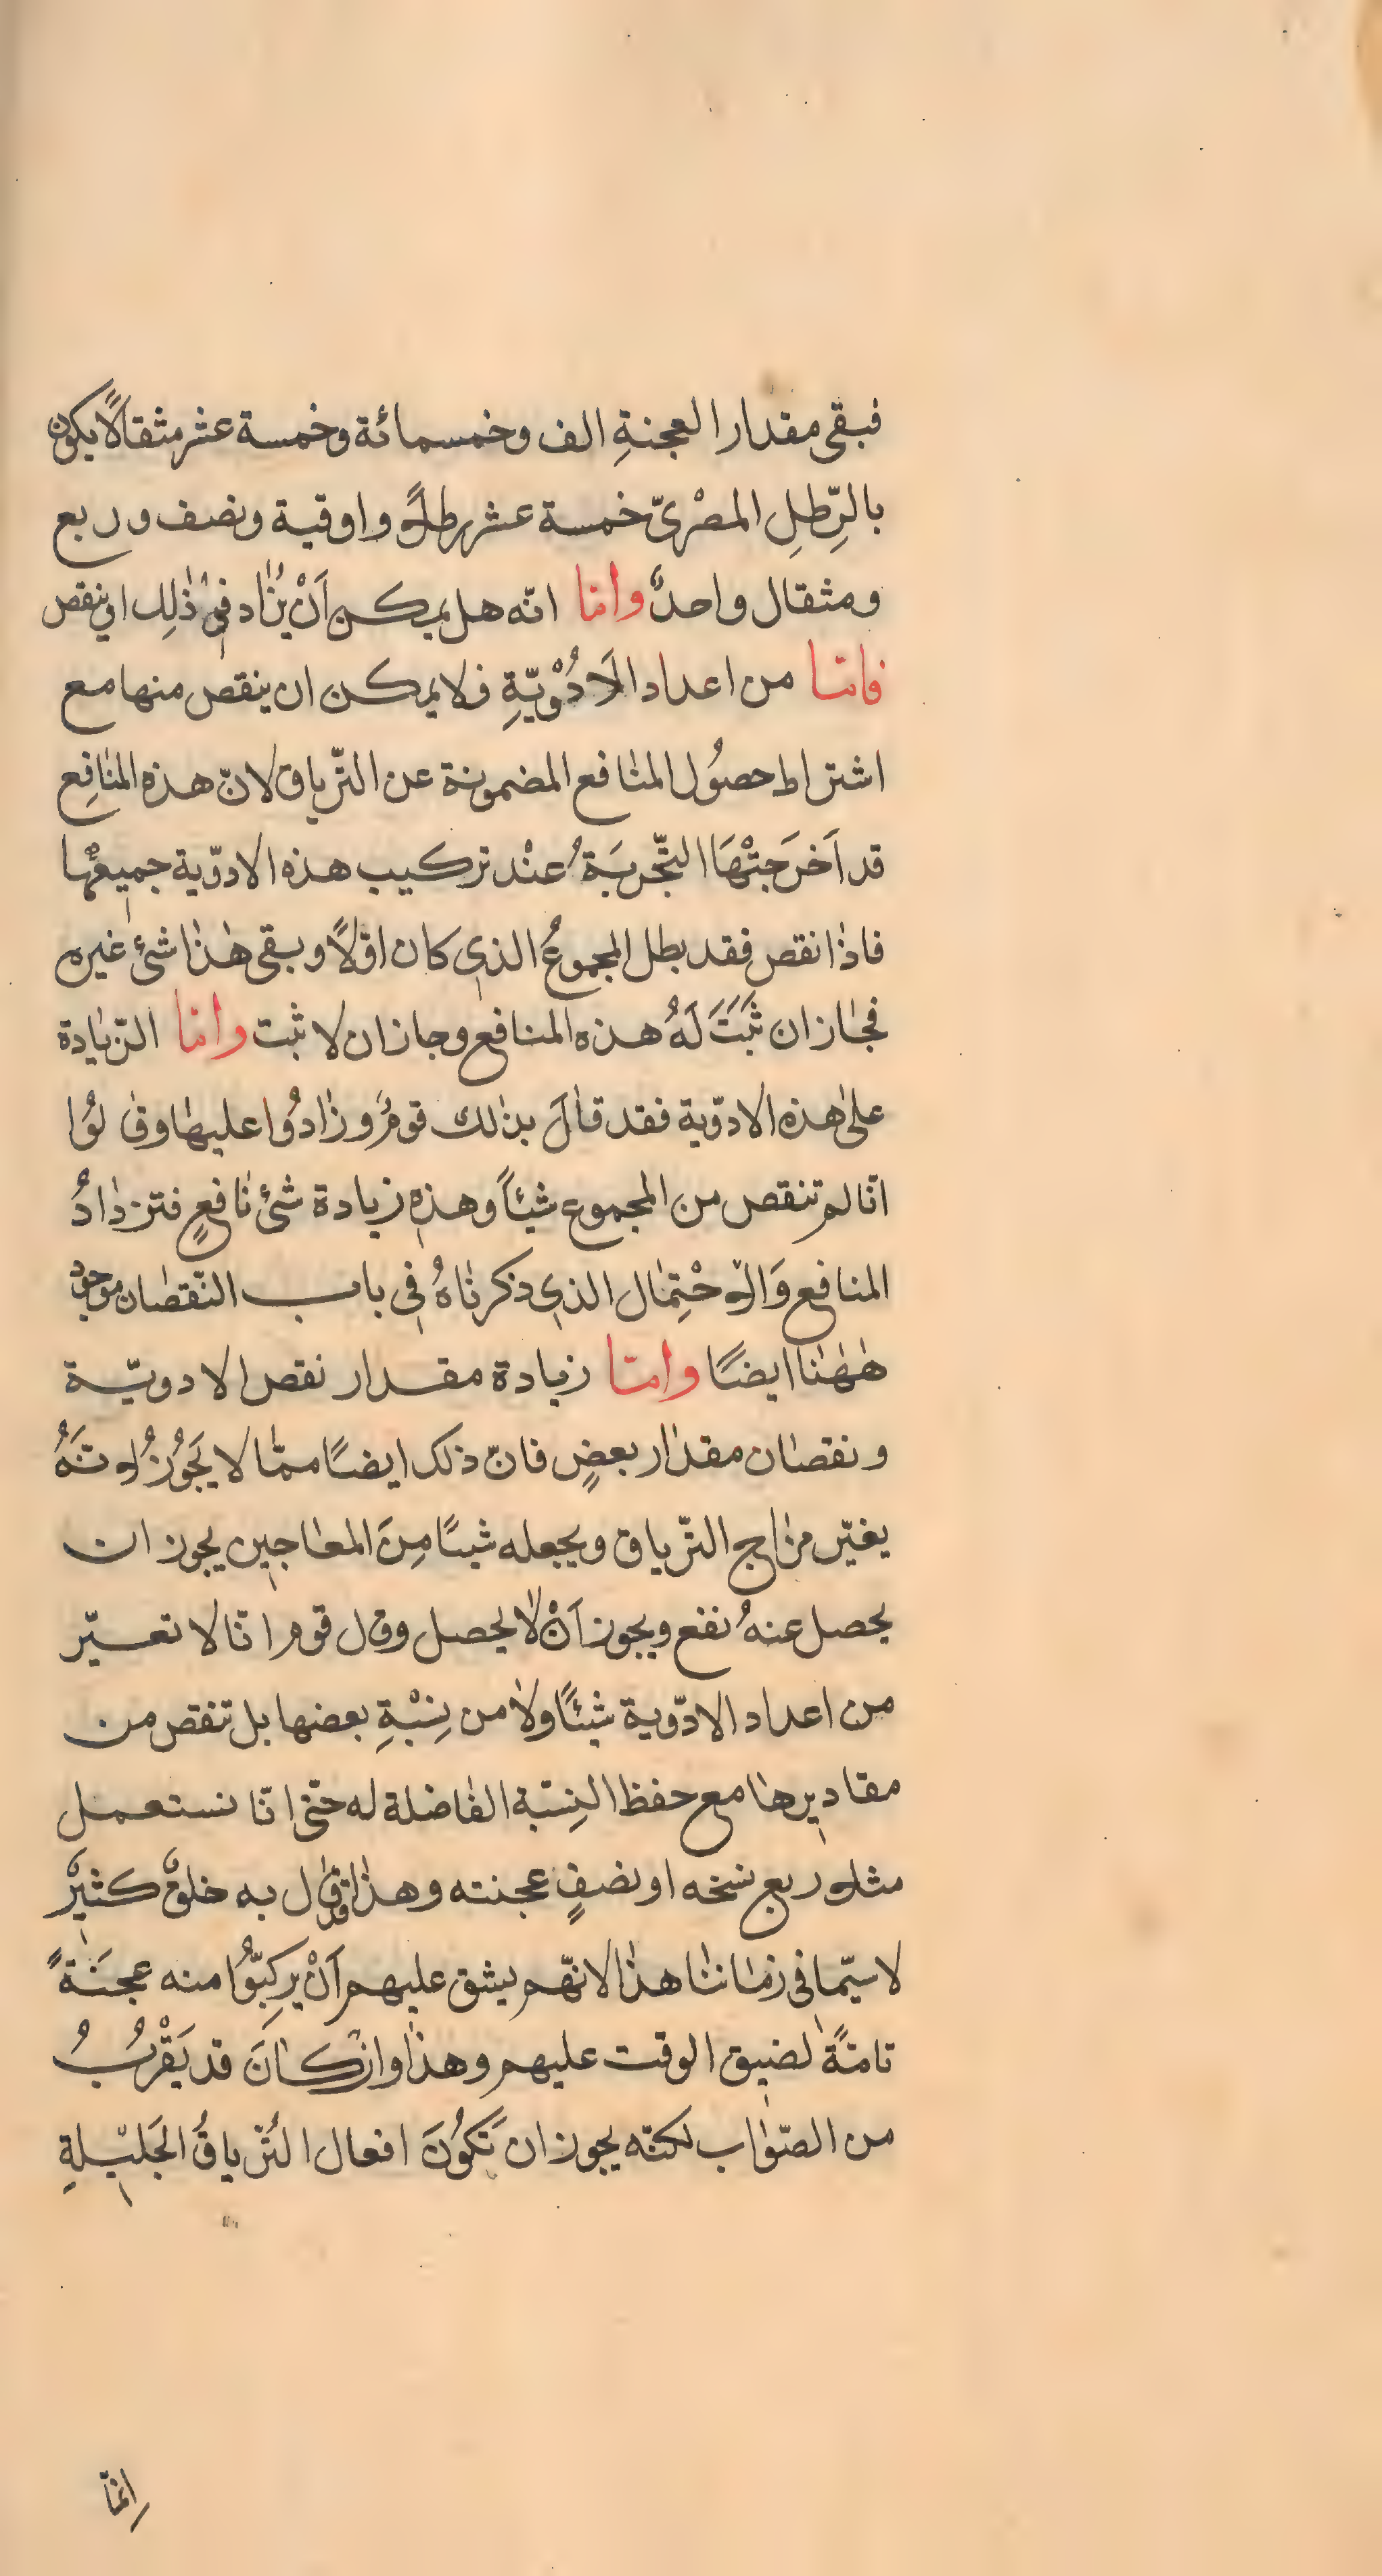 فبقى مقدار العجنةِ الف وخمسمائة وخمسة عشر مثقالاً يكون
بالرِّطلِ المصْرىّ خمسة عشر رطلاً واوقية ونصف وربع
ومثقال واحدٌ وامّا انّه هل يمكن اَنْ يُزاد فى ذٰلِك او ينقص
فامّا من اعداد الاَدْوُيّةِ فلا يمكن ان ينقص منها مع
اشتراط حصُول المنافع المضمونة عن التّرياق لانّ هذه المنافِع
قد اَخرَجتْهَا التّجربَةُ عنْد تركيب هذه الادوّية جميعُها
فاذا نقص فقد بطل المجموعُ الذى كان اوّلاً وبقى هٰذا شئ غيره
فجاز ان ثَبَتَ لَهُ هذه المنافع وجاز ان لا ثبت وامّا الزّيادة
على هذه الادوّية فقد قالَ بذلك قومٌ وزادُوا عليها وقالوُا
انّا لم تنقص من المجموع شيئاً وهذه زيادة شئ نافعٍ فتزدادُ
المنافع وَالاحْتِمال الذى ذكرناهُ فى باب النّقصان موجودٌ
هٰهُنا ايضًا وامّا زيادة مقدار نقص الادويّة
ونقصان مقدار بعضٍ فانّ ذلك ايضًا ممّا لا يَجُوزُ لانّهُ
يغيّر مزاج التّرياق ويجعله شيئًا مِنَ المعاجين يجوز ان
يحصل عنهُ نفع ويجوز اَنْ لا يحصل وقال قوم انّا لا تعسيّر
من اعداد الادوّية شيئًا ولا من نِسْبْةِ بعضها بل تنقص من
مقاديرها مع حفظ النِسّبة الفاضلة له حتى انّا نستعمل
مثلاً ربع نسخه او نصفِ عجنته وهذا قد قال به خلقٌ كثيرٌ
لا سيّما فى زماننا هذا لانّهم يشق عليهم اَنْ يركِبّوُا منه عجنَةً
تامّةً لضيق الوقت عليهم وهذا وان كانَ قد يَقْربُ
من الصّواب لكنّه يجوز ان تَكُونَ افعال التّرياقُ الجَليْلةِ
اِنمّا